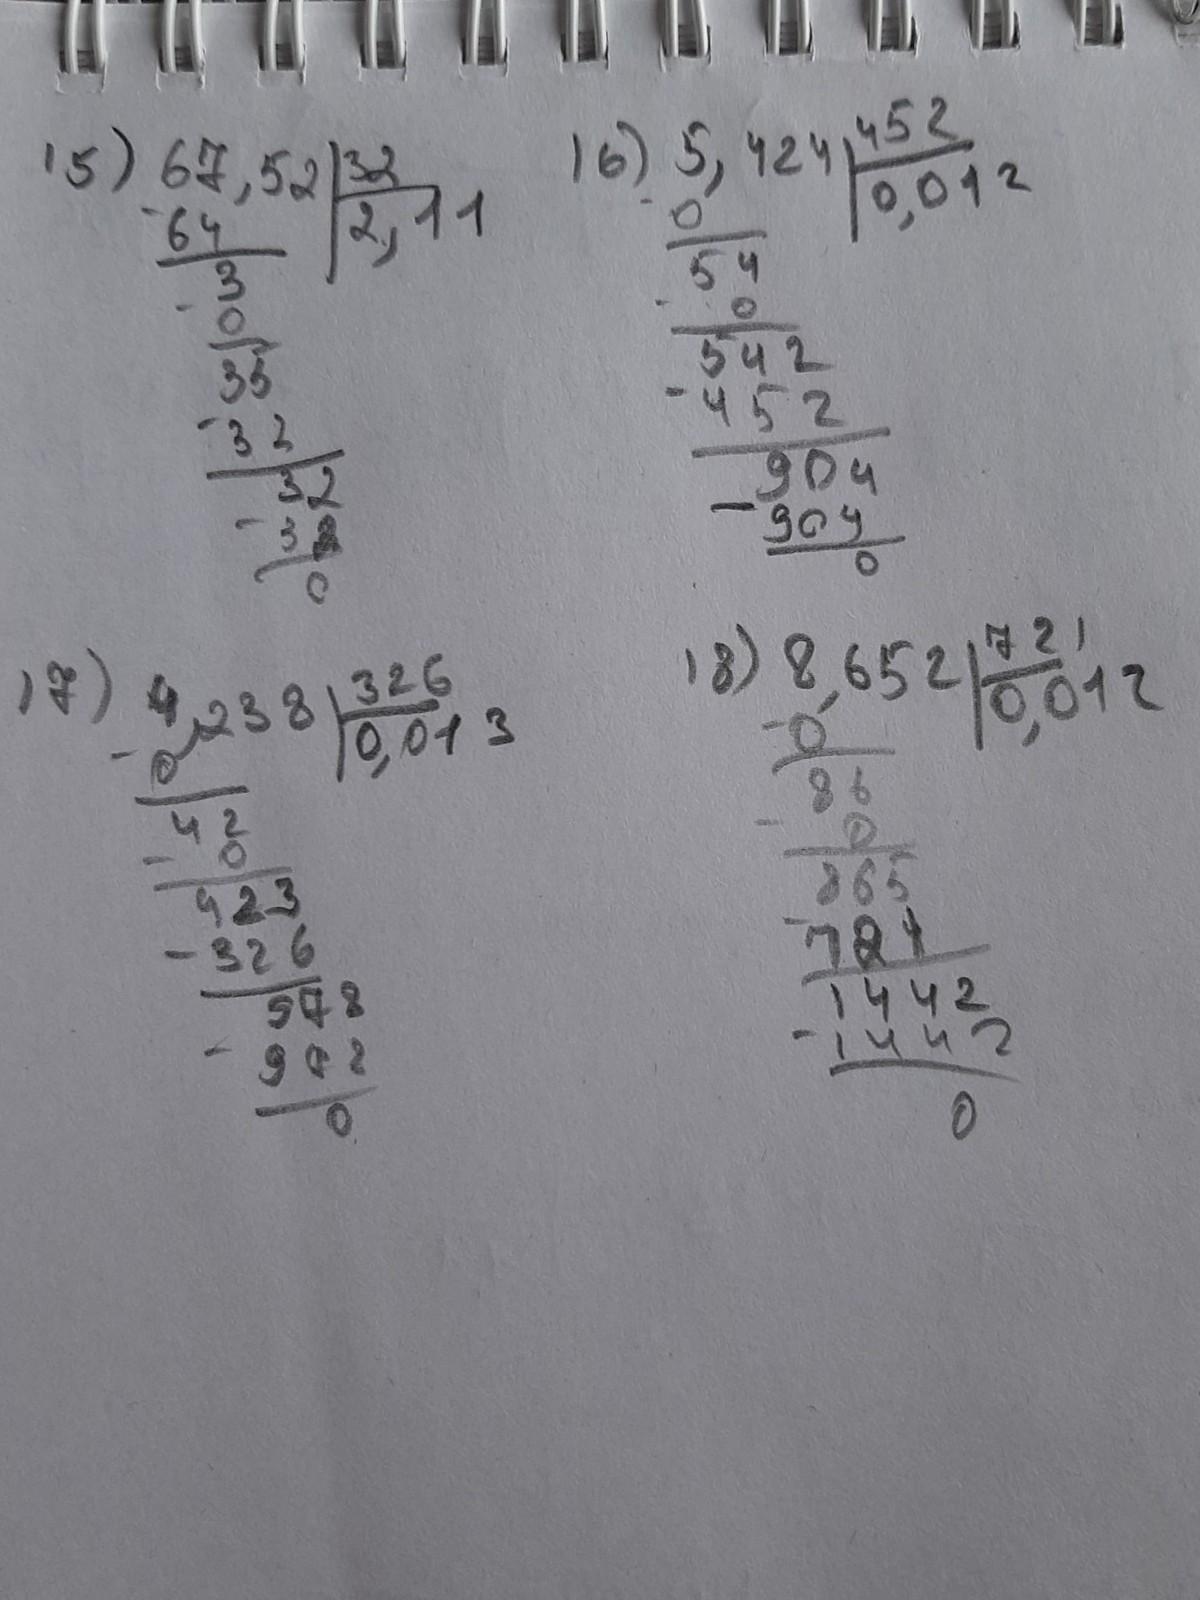 15) 67,52 | 32
- 64 | 2,11
3
- 0
35
- 32
32
- 32
0
16) 5,424 | 452
- 0 | 0,012
54
- 0
542
- 452
904
- 904
0
17) 4,238 | 326
- 0 | 0,013
42
- 0
423
- 326
978
- 978
0
18) 8,652 | 721
- 0 | 0,012
86
- 0
865
- 721
1442
- 1442
0